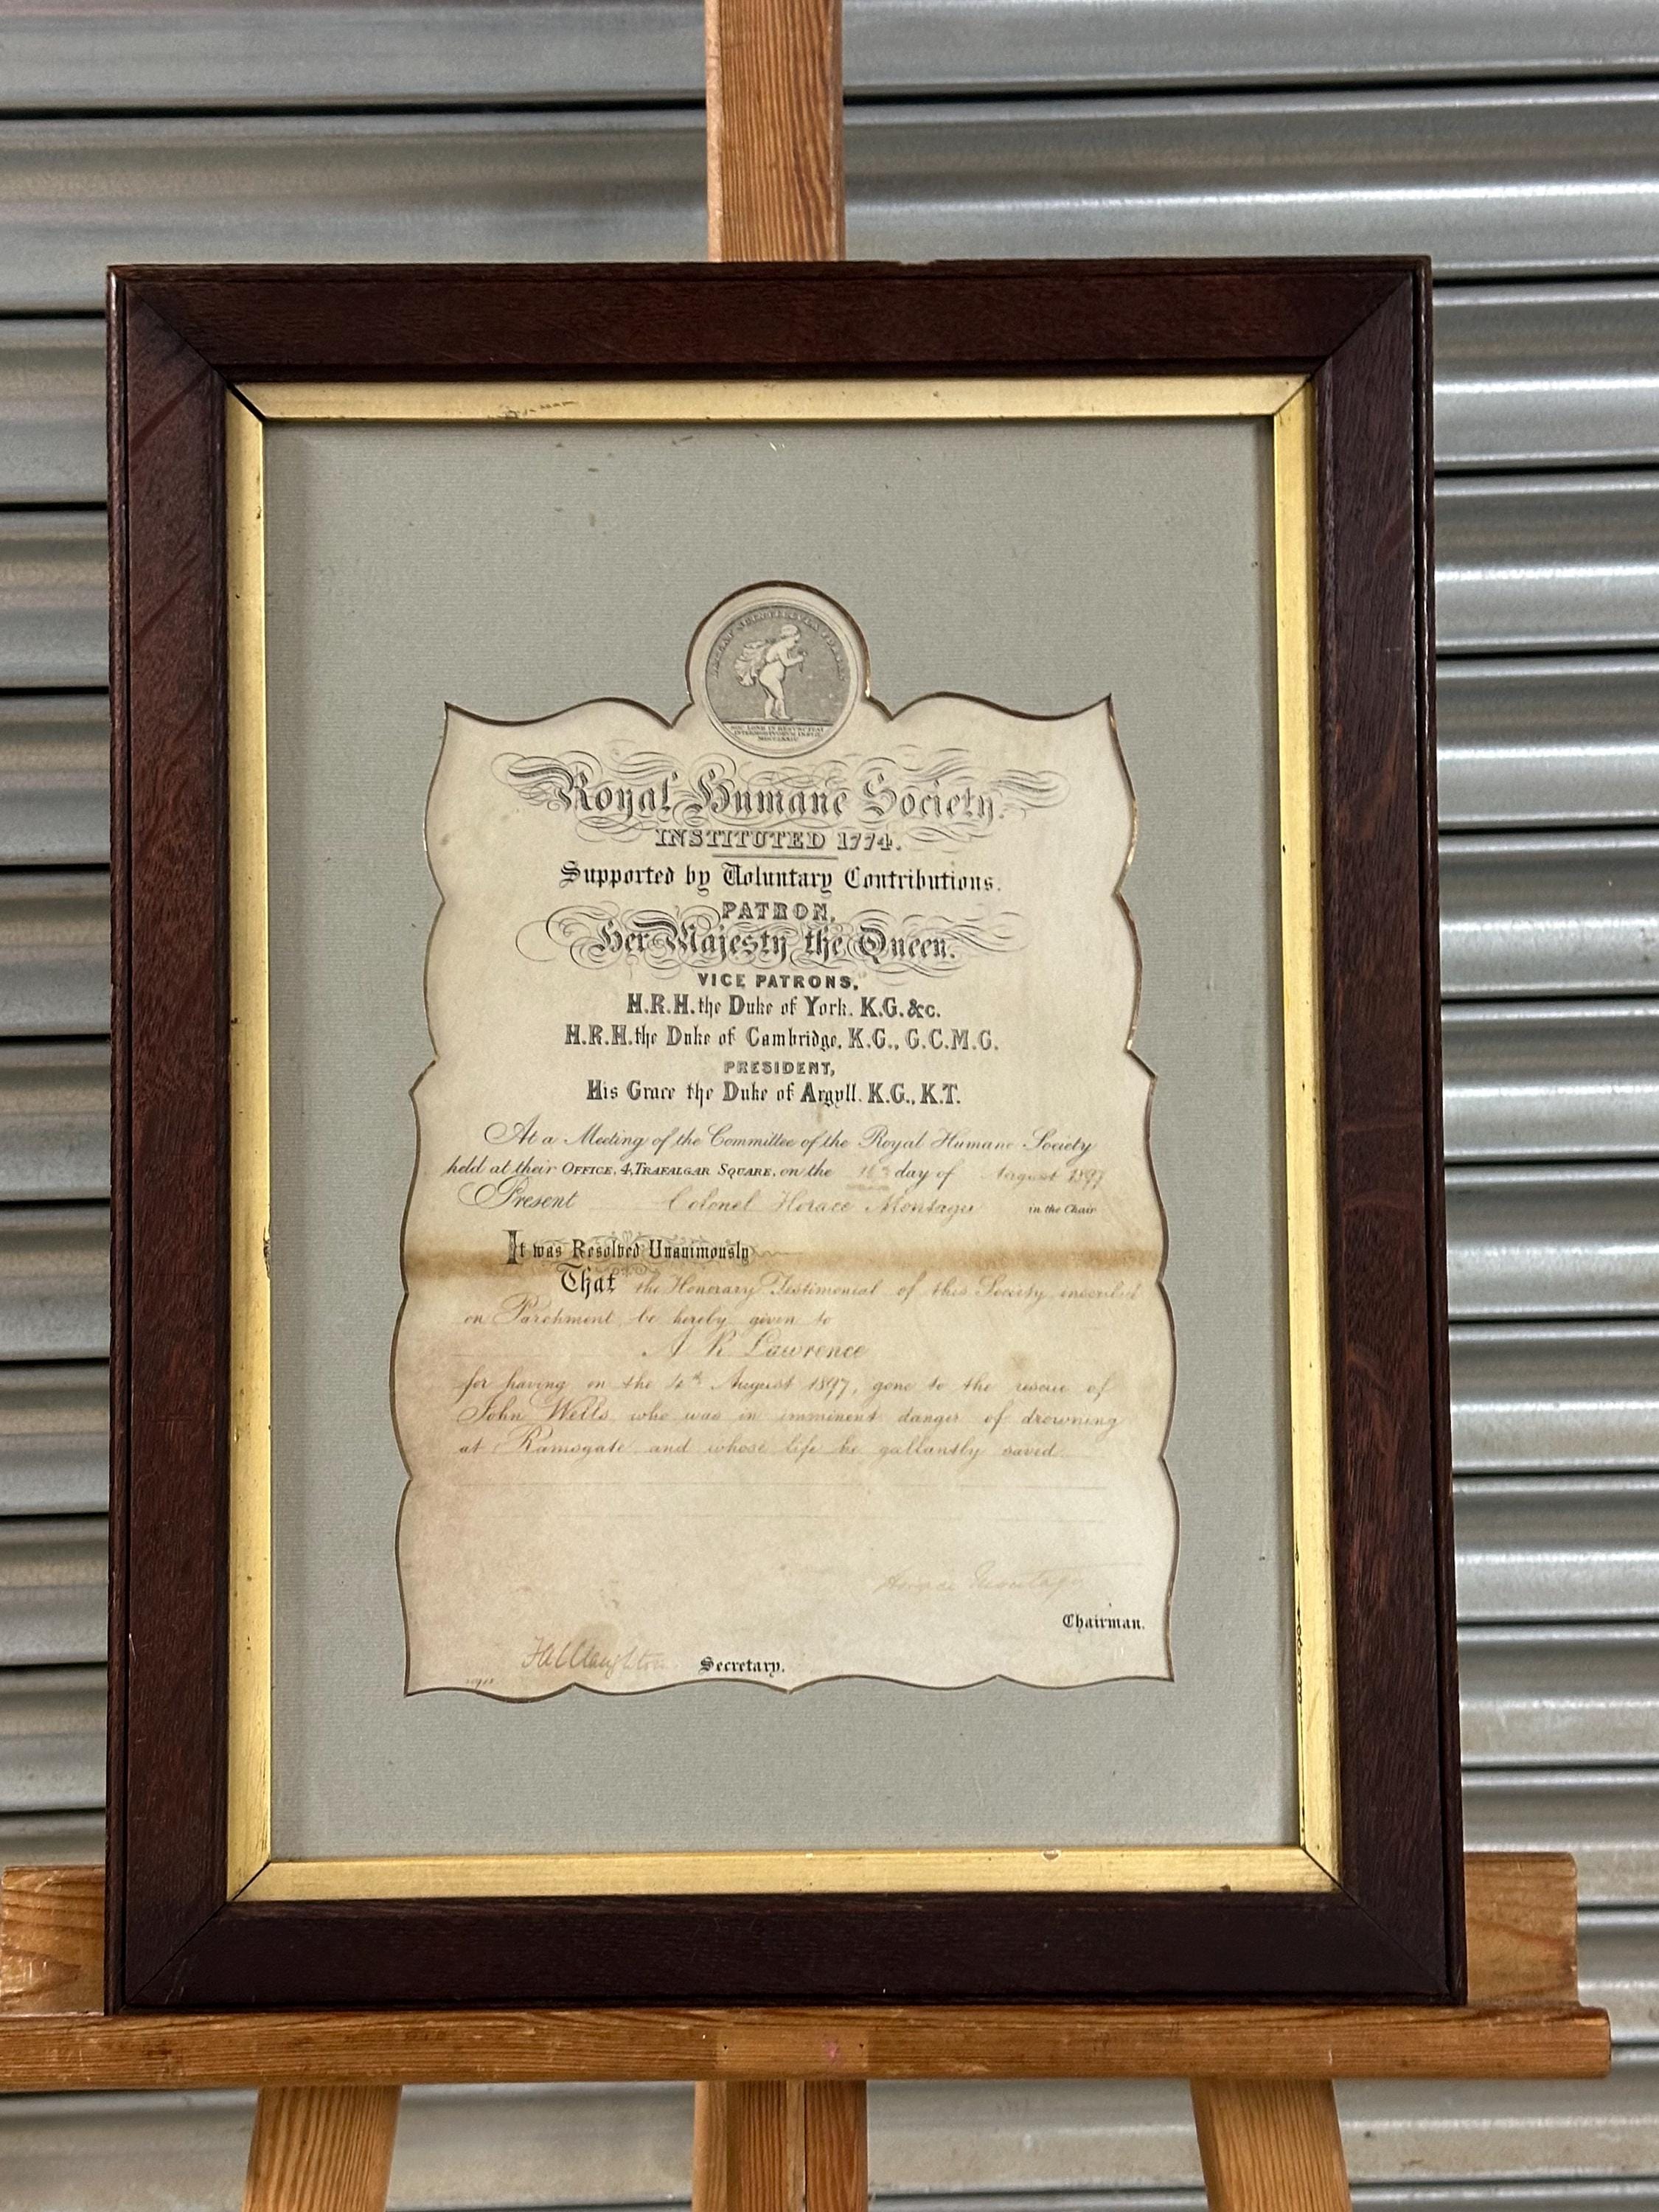 LATEAT SCINTILLVLA FORSAN
HOC LONE IN RESVSCITAT
INTERMORTVORVM INSTIT.
MDCCLXXIV
Royal Humane Society.
INSTITUTED 1774.
Supported by Voluntary Contributions.
PATRON,
Her Majesty the Queen.
VICE PATRONS,
H.R.H. the Duke of York. K.G. &c.
H.R.H. the Duke of Cambridge, K.G., G.C.M.G.
PRESIDENT,
His Grace the Duke of Argyll. K.G., K.T.
At a Meeting of the Committee of the Royal Humane Society
held at their OFFICE, 4, TRAFALGAR SQUARE, on the day of August 1897
Present Colonel Horace Montagu in the Chair
It was Resolved Unanimously
That the Honorary Testimonial of this Society inscribed
on Parchment be hereby given to
A R Lawrence
for having on the 4th August 1897, gone to the rescue of
John Wells, who was in imminent danger of drowning
at Ramsgate and whose life he gallantly saved.
Horace Montagu
Chairman.
Secretary.